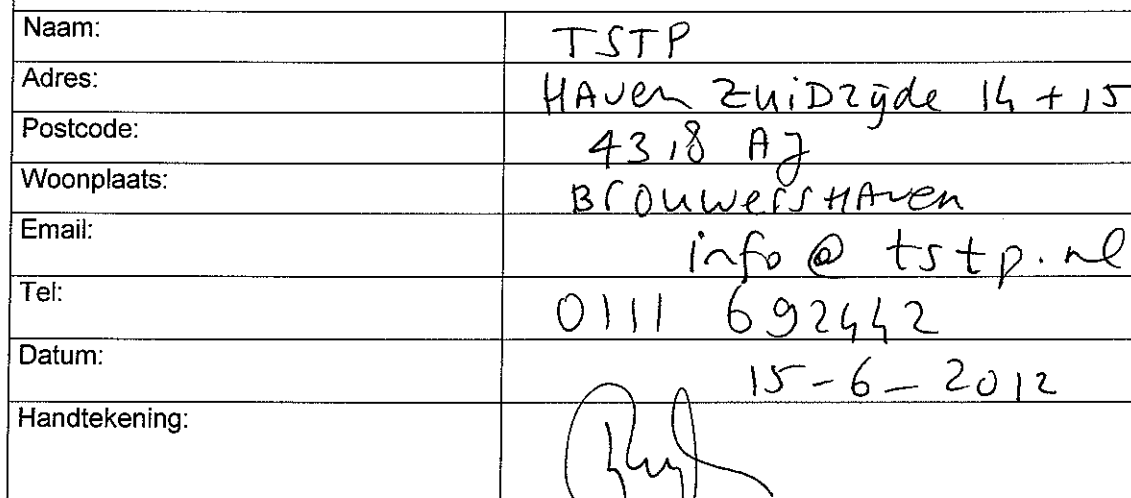 Naam: TSTP
Adres: HAven ZuiDzijde 14 + 15
Postcode: 4318 AJ
Woonplaats: BrouwersHAven
Email: info @ tstp.nl
Tel: 0111 692442
Datum: 15-6-2012
Handtekening: